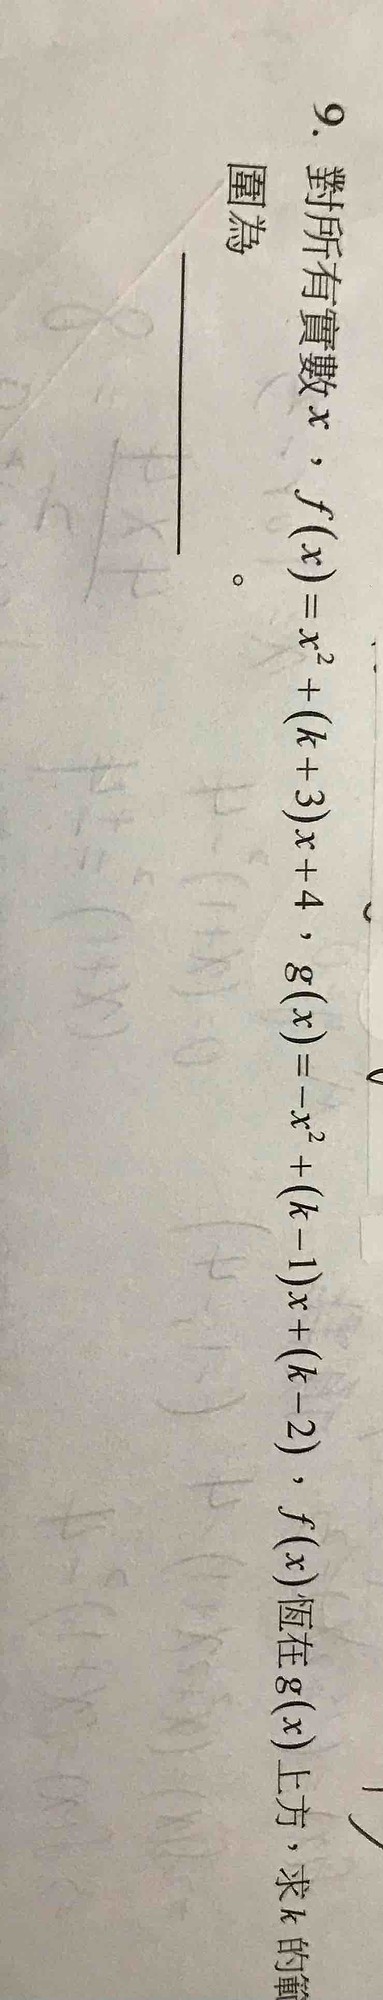 9. 對所有實數x，f(x)=x²+(k+3)x+4，g(x)=-x²+(k-1)x+(k-2)，f(x)恆在g(x)上方，求k的範
圍為＿＿＿＿＿＿。